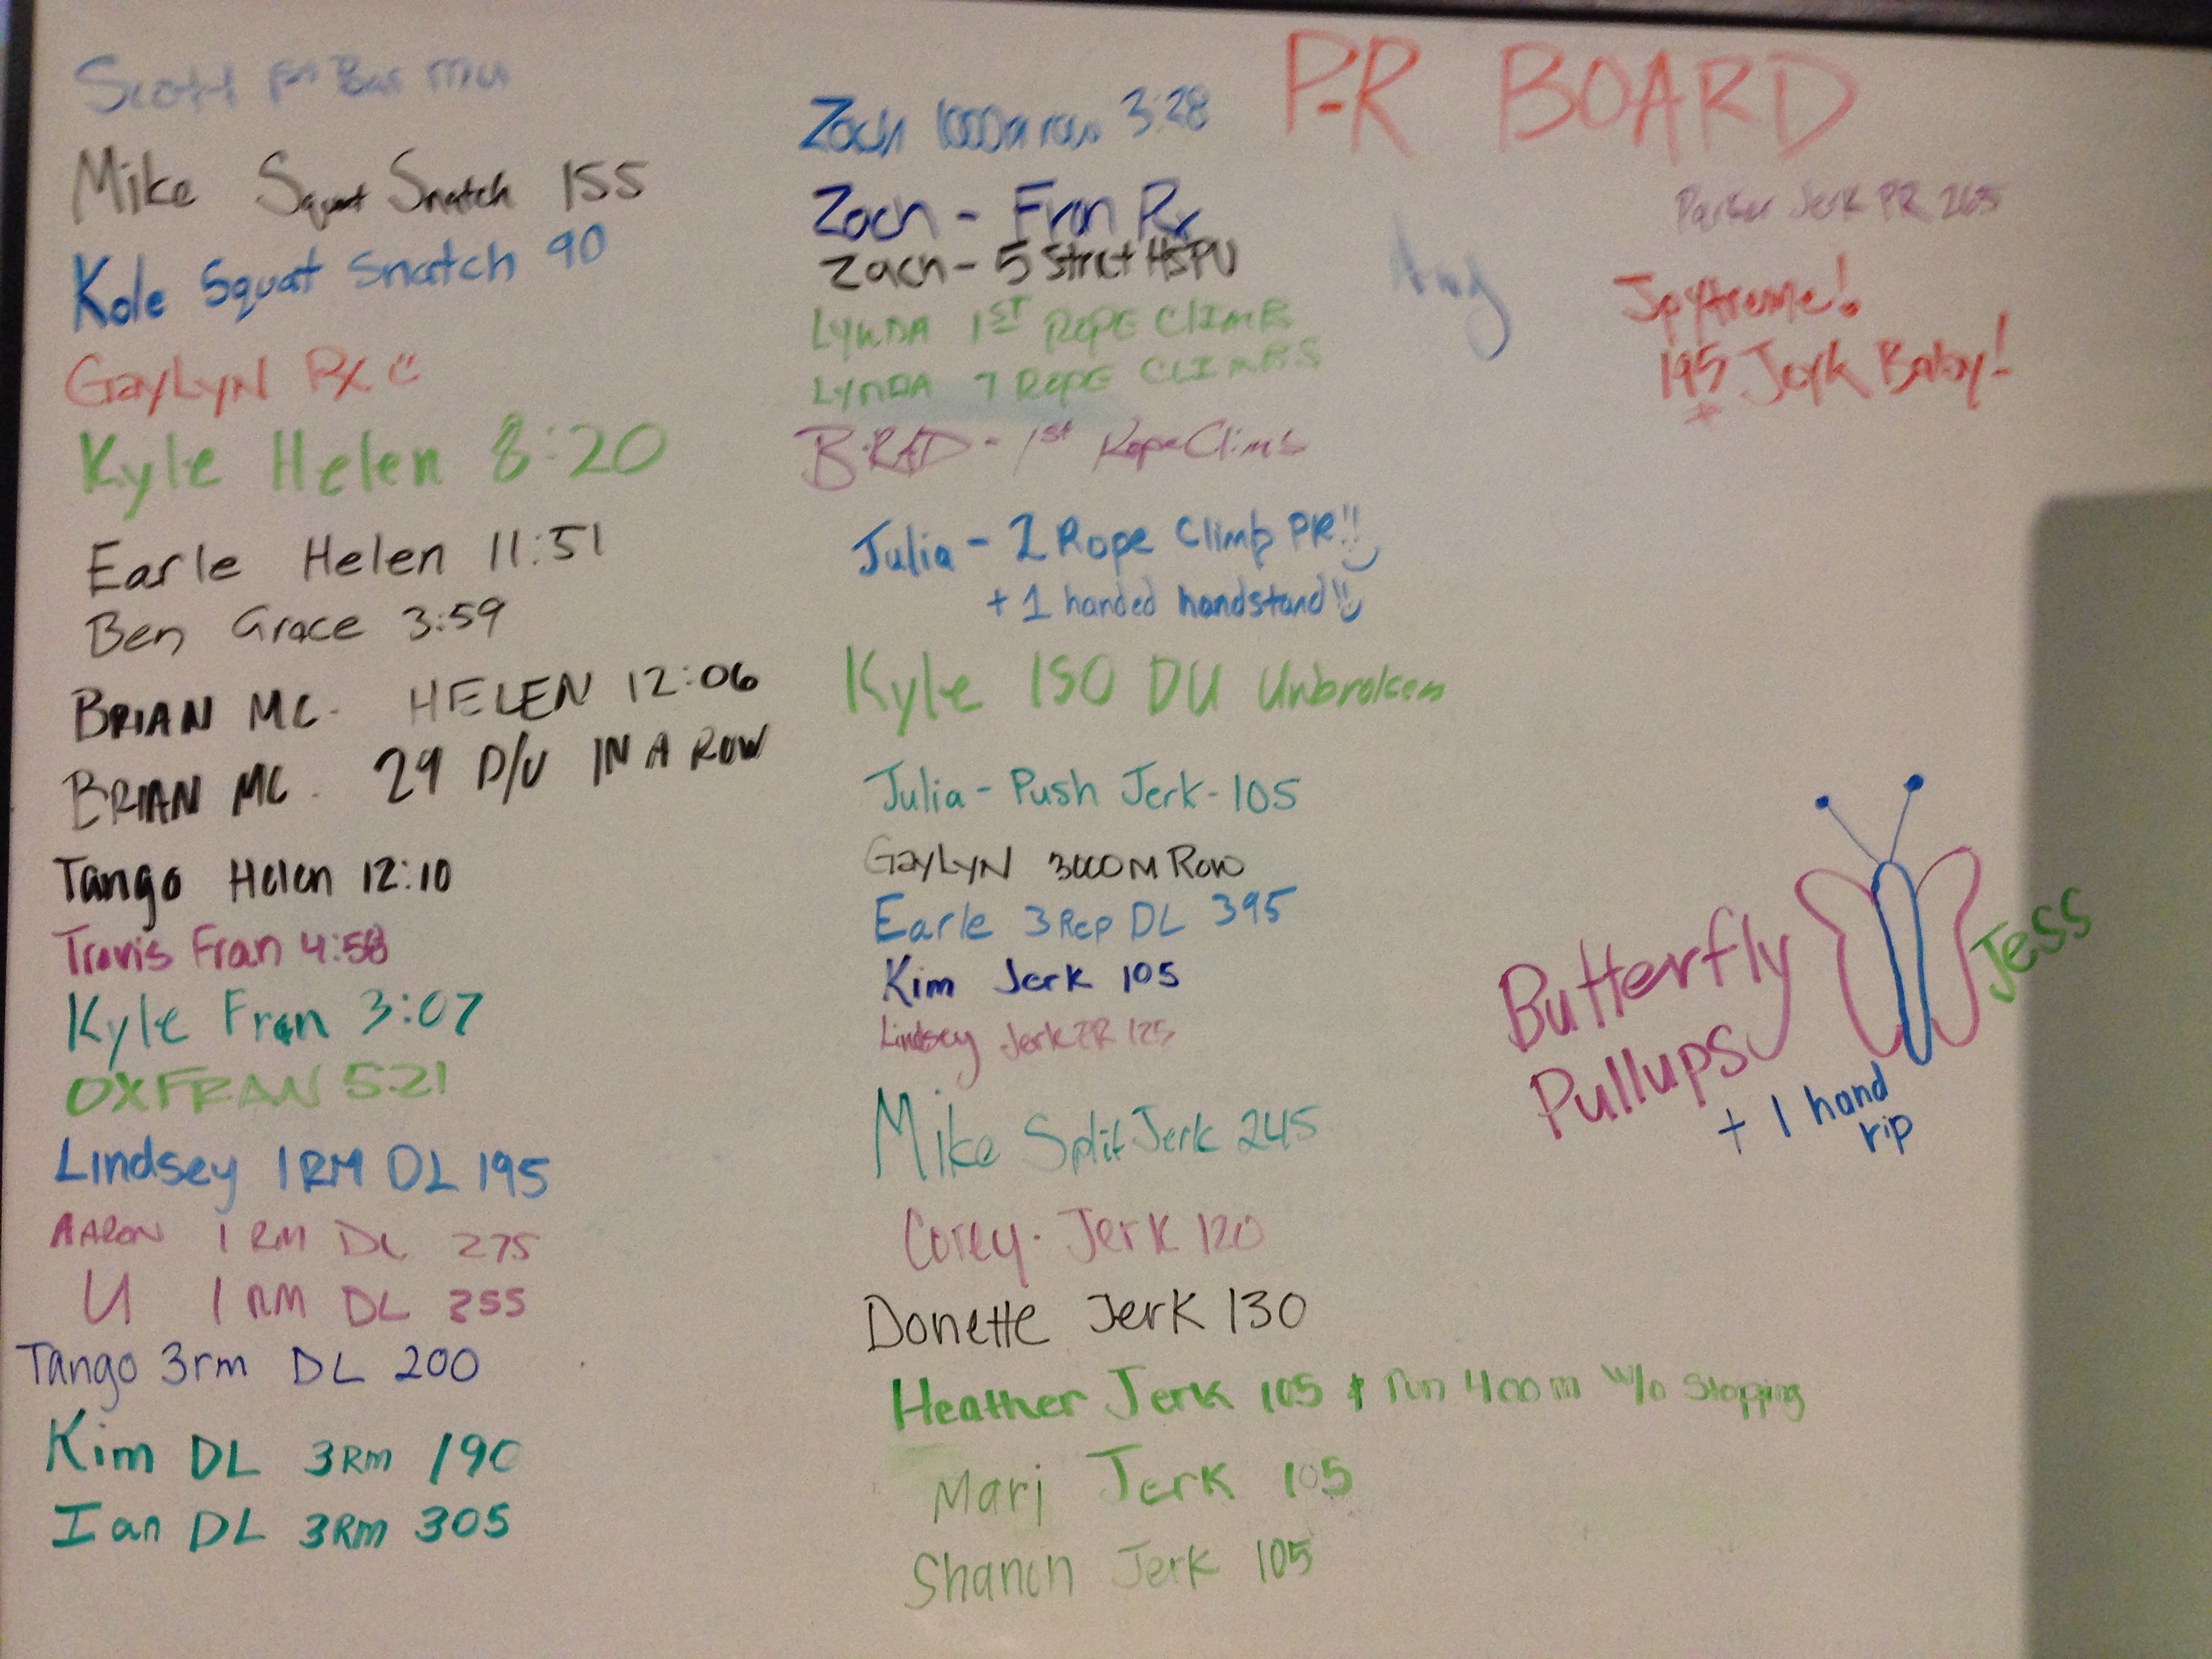 Scott Bar MU
Mike Squat Snatch 155
Kole Squat Snatch 90
GayLyN Rx
Kyle Helen 8:20
Earle Helen 11:51
Ben Grace 3:59
BRIAN MC. HELEN 12:06
BRIAN MC. 29 D/U IN A ROW
Tango Helen 12:10
Travis Fran 4:58
Kyle Fran 3:07
OX FRAN 5:21
Lindsey 1RM DL 195
AARON 1 RM DL 275
U 1 RM DL 255
Tango 3rm DL 200
Kim DL 3RM 190
Ian DL 3RM 305
Zach 1000m row 3:28
Zach - Fran Rx
Zach - 5 Strict HSPU
LYNDA 1ST ROPE CLIMB
LYNDA 7 ROPE CLIMBS
B-RAD - 1st Rope Climb
Julia - 2 Rope Climb PR!!
+ 1 handed handstand!!
Kyle 150 DU Unbroken
Julia - Push Jerk - 105
GayLyN 3000 M Row
Earle 3 Rep DL 395
Kim Jerk 105
Lindsey Jerk PR 125
Mike Split Jerk 245
Corey - Jerk 120
Donette Jerk 130
Heather Jerk 105 & run 400m w/o stopping
Marj Jerk 105
Jerk 105
P-R BOARD
Parker Jerk PR 265
Ang
Jaytreme!
195 Jerk Baby!
Butterfly
Pullups
+ 1 hand
rip
Jess